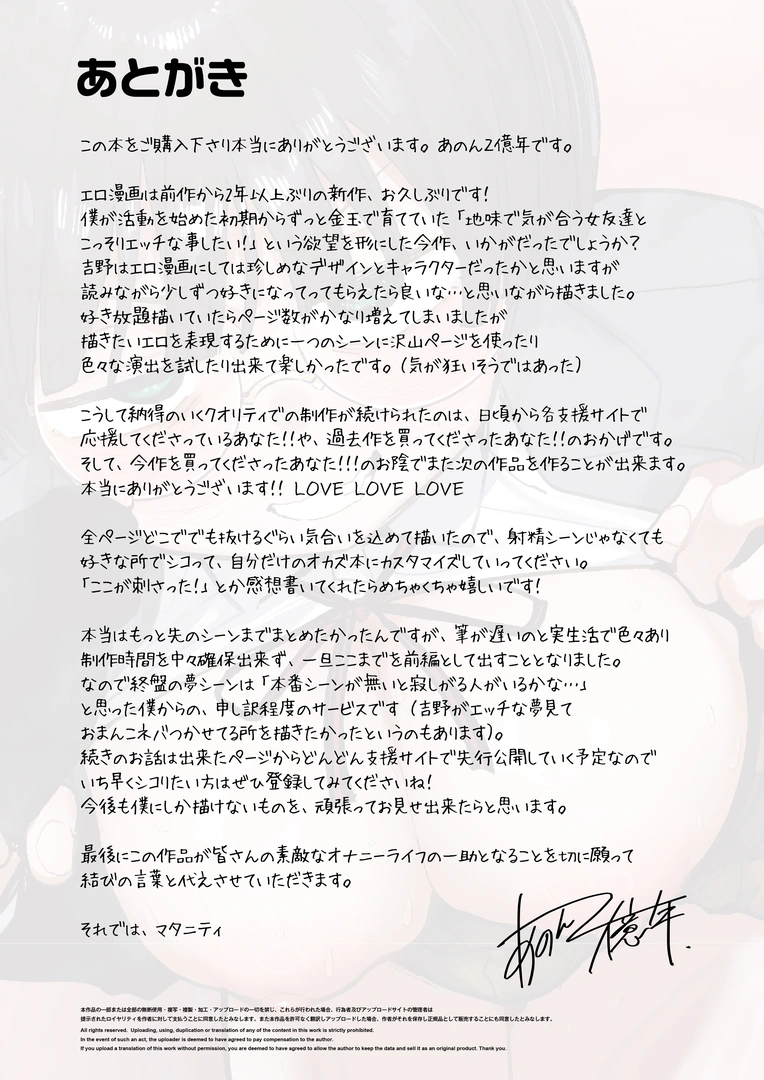 あとがき
この本をご購入下さり本当にありがとうございます。あのん2億年です。
エロ漫画は前作から2年以上ぶりの新作、お久しぶりです!
僕が活動を始めた初期からずっと金玉で育てていた「地味で気が合う女友達と
こっそりエッチな事したい!」という欲望を形にした今作、いかがだったでしょうか?
吉野はエロ漫画にしては珍しめなデザインとキャラクターだったかと思いますが
読みながら少しずつ好きになってってもらえたら良いな…と思いながら描きました。
好き放題描いていたらページ数がかなり増えてしまいましたが
描きたいエロを表現するために一つのシーンに沢山ページを使ったり
色々な演出を試したり出来て楽しかったです。(気が狂いそうではあった)
こうして納得のいくクオリティでの制作が続けられたのは、日頃から各支援サイトで
応援してくださっているあなた!!や、過去作を買ってくださったあなた!!のおかげです。
そして、今作を買ってくださったあなた!!!のお陰でまた次の作品を作ることが出来ます。
本当にありがとうございます!! LOVE LOVE LOVE
全ページどこででも抜けるぐらい気合いを込めて描いたので、射精シーンじゃなくても
好きな所でシコって、自分だけのオカズ本にカスタマイズしていってください。
「ここが刺さった!」とか感想書いてくれたらめちゃくちゃ嬉しいです!
本当はもっと先のシーンまでまとめたかったんですが、筆が遅いのと実生活で色々あり
制作時間を中々確保出来ず、一旦ここまでを前編として出すこととなりました。
なので終盤の夢シーンは「本番シーンが無いと寂しがる人がいるかな…」
と思った僕からの、申し訳程度のサービスです(吉野がエッチな夢見て
おまんこネバつかせてる所を描きたかったというのもあります)。
続きのお話は出来たページからどんどん支援サイトで先行公開していく予定なので
いち早くシコりたい方はぜひ登録してみてくださいね!
今後も僕にしか描けないものを、頑張ってお見せ出来たらと思います。
最後にこの作品が皆さんの素敵なオナニーライフの一助となることを切に願って
結びの言葉と代えさせていただきます。
それでは、マタニティ
あのん2億年.
本作品の一部または全部の無断使用・複写・複製・加工・アップロードの一切を禁じ、これらが行われた場合、行為者及びアップロードサイトの管理者は
提示されたロイヤリティを作者に対して支払うことに同意したとみなします。また本作品を許可なく翻訳しアップロードした場合、作者がそれを保存し正規品として販売することにも同意したとみなします。
All rights reserved. Uploading, using, duplication or translation of any of the content in this work is strictly prohibited.
In the event of such an act, the uploader is deemed to have agreed to pay compensation to the author.
If you upload a translation of this work without permission, you are deemed to have agreed to allow the author to keep the data and sell it as an original product. Thank you.